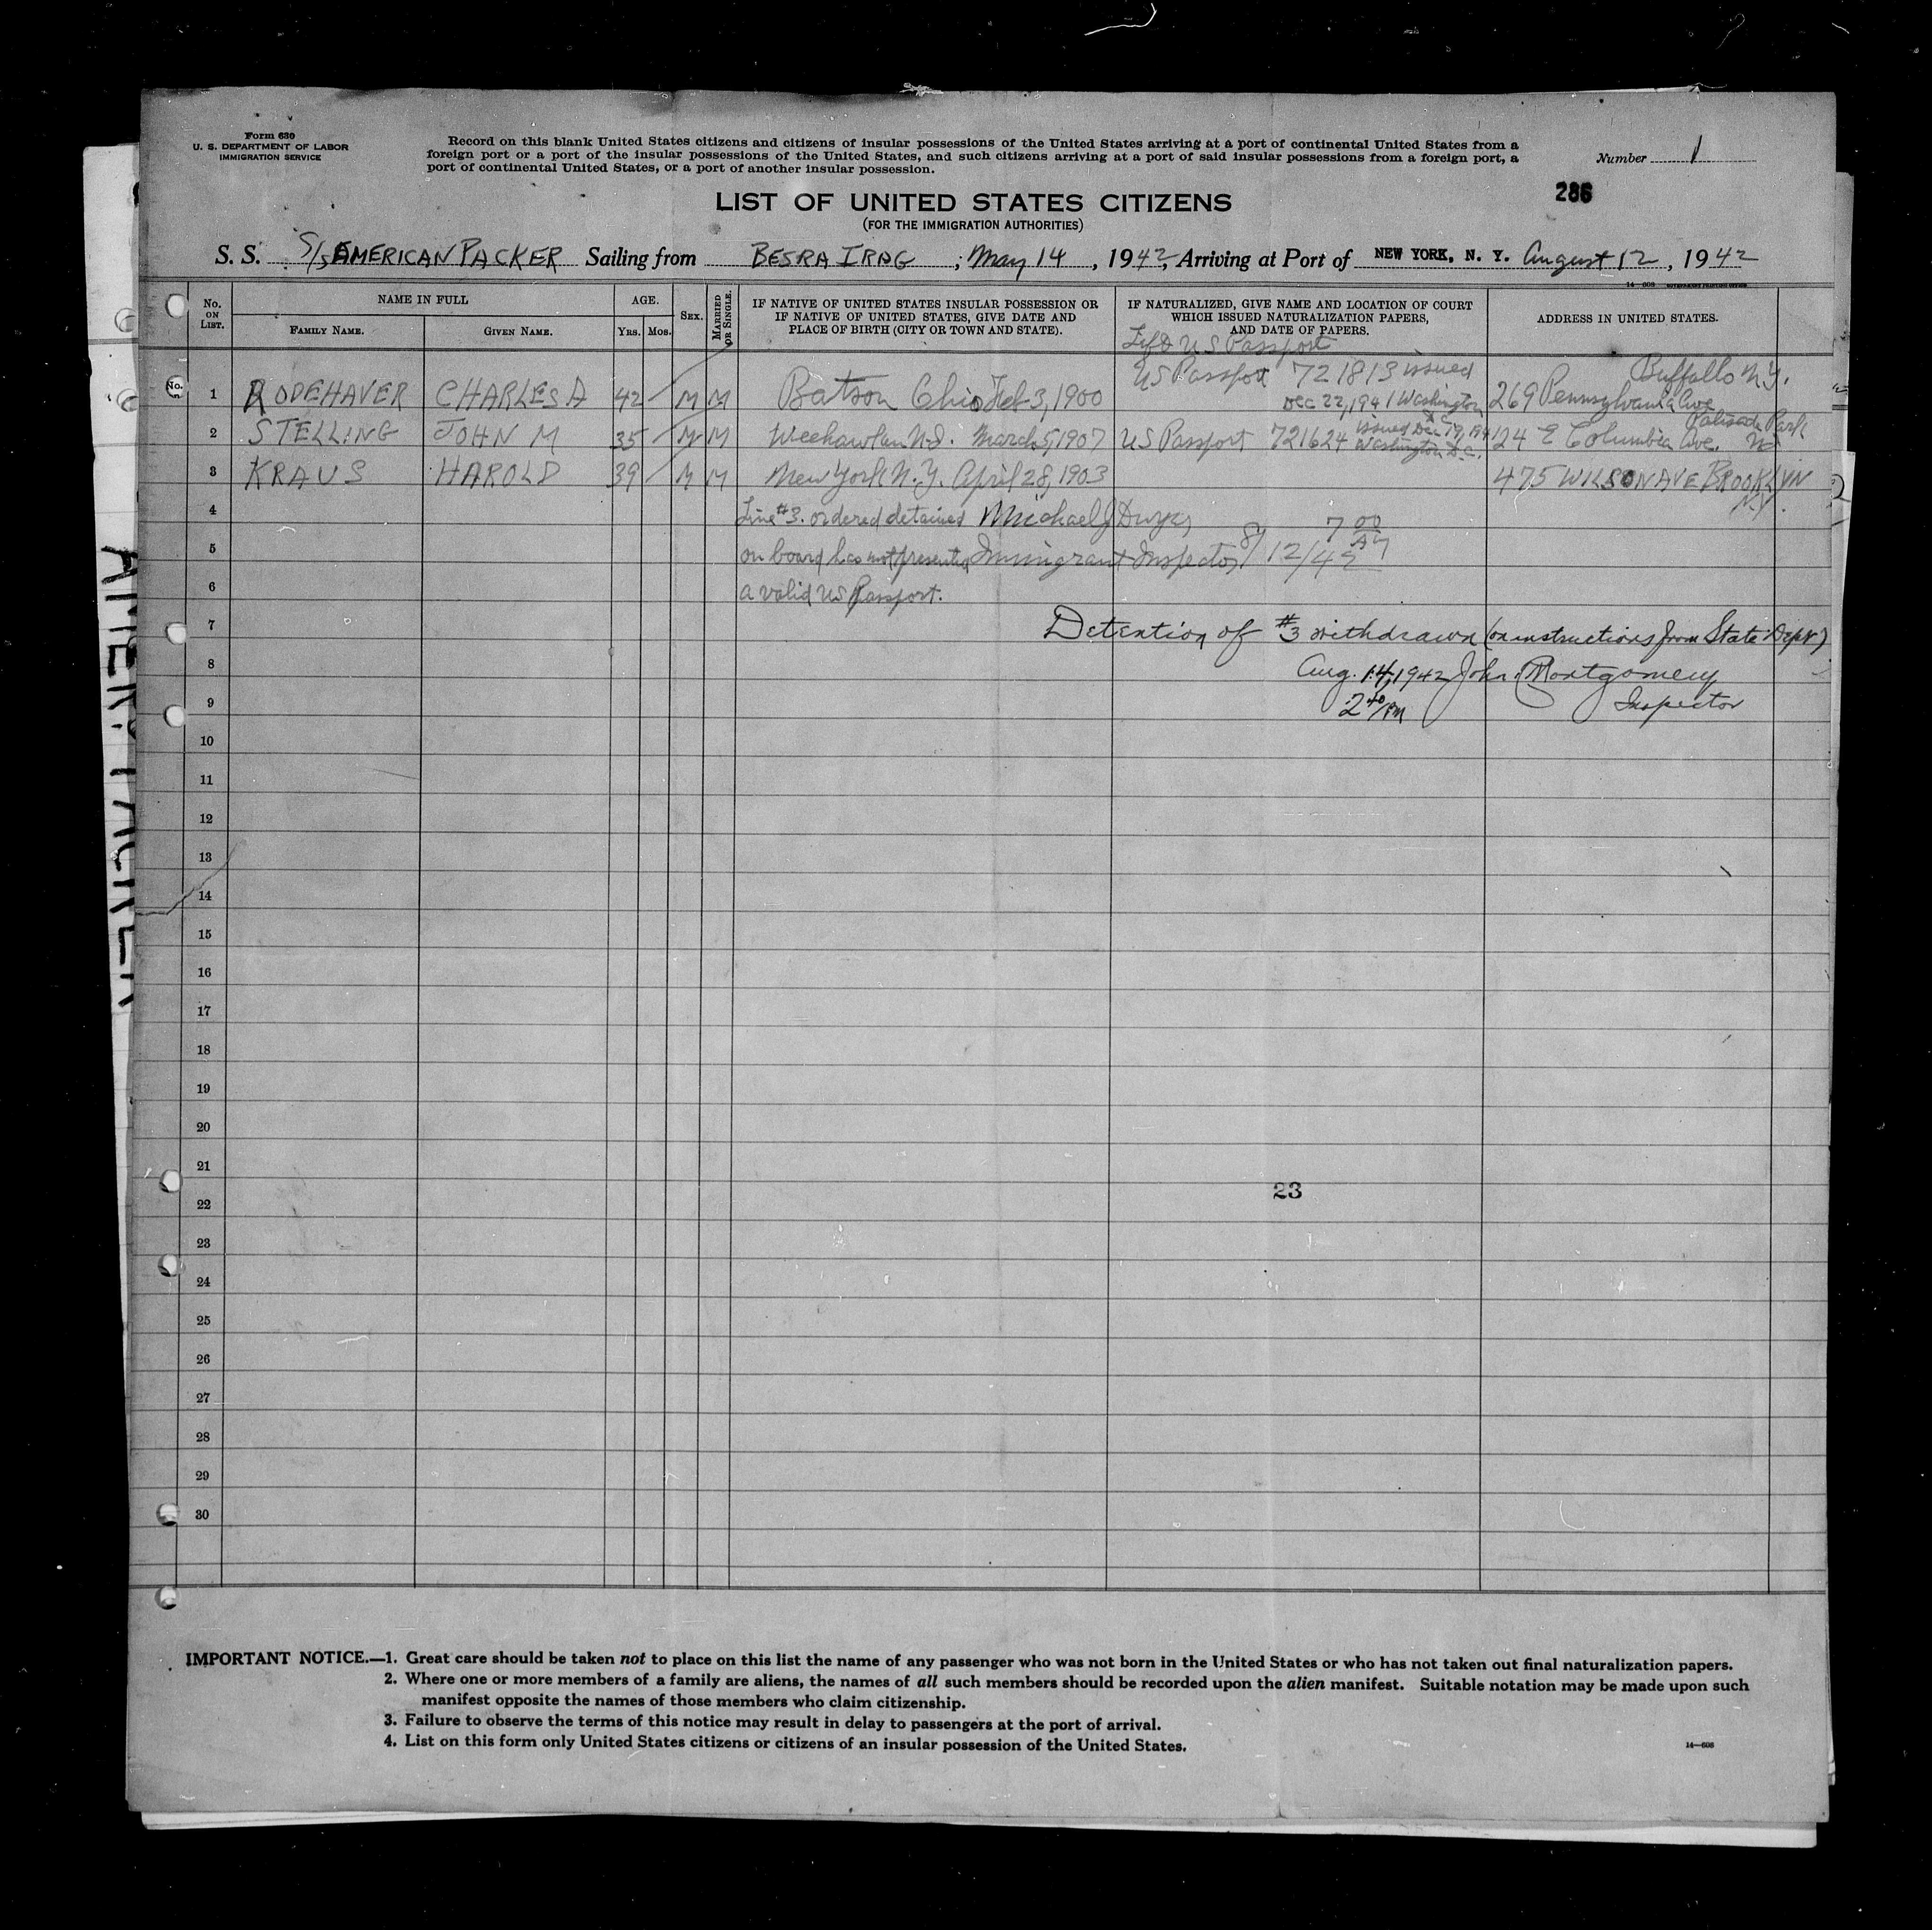 Form 630
U. S. DEPARTMENT OF LABOR
IMMIGRATION SERVICE
Record on this blank United States citizens and citizens of insular possessions of the United States arriving at a port of continental United States from a
foreign port or a port of the insular possessions of the United States, and such citizens arriving at a port of said insular possessions from a foreign port, a
port of continental United States, or a port of another insular possession.
Number 1
286
LIST OF UNITED STATES CITIZENS
(FOR THE IMMIGRATION AUTHORITIES)
S. S. S/S AMERICAN PACKER Sailing from BESRA IRAG ; May 14 , 1942, Arriving at Port of NEW YORK, N. Y. August 12 , 1942
14—608 GOVERNMENT PRINTING OFFICE
No. ON LIST.
NAME IN FULL
FAMILY NAME.
GIVEN NAME.
AGE.
YRS.
MOS.
SEX.
MARRIED OR SINGLE.
IF NATIVE OF UNITED STATES INSULAR POSSESSION OR
IF NATIVE OF UNITED STATES, GIVE DATE AND
PLACE OF BIRTH (CITY OR TOWN AND STATE).
IF NATURALIZED, GIVE NAME AND LOCATION OF COURT
WHICH ISSUED NATURALIZATION PAPERS,
AND DATE OF PAPERS.
ADDRESS IN UNITED STATES.
US Passport
No.
1 RODEHAVER CHARLES A 42 M M Batson Ohio Feb 3, 1900 US Passport 721813 issued Dec 22, 1941 Washington D.C. 269 Pennsylvania Ave Buffallo N.Y.
2 STELLING JOHN M 35 M M Weehawken N.J. March 5, 1907 US Passport 721624 issued Dec 19, 194 Washington D.C. 124 E Columbia Ave. Palisade Park NJ
3 KRAUS HAROLD 39 M M New York N.Y. April 28, 1903 475 WILSON AVE BROOKLYN N.Y.
4 Line #3. ordered detained Michael J Dwyer 7 00 AM
5 on board has not presented Immigrant Inspector 8/12/42
6 a valid US Passport.
7 Detention of #3 withdrawn (on instructions from State Dept)
8 Aug. 14, 1942 John Montgomery
9 2 40/PM Inspector
10
11
12
13
14
15
16
17
18
19
20
21
23
22
23
24
25
26
27
28
29
30
IMPORTANT NOTICE.—1. Great care should be taken not to place on this list the name of any passenger who was not born in the United States or who has not taken out final naturalization papers.
2. Where one or more members of a family are aliens, the names of all such members should be recorded upon the alien manifest. Suitable notation may be made upon such
manifest opposite the names of those members who claim citizenship.
3. Failure to observe the terms of this notice may result in delay to passengers at the port of arrival.
4. List on this form only United States citizens or citizens of an insular possession of the United States.
14—608
AMER. PACKER